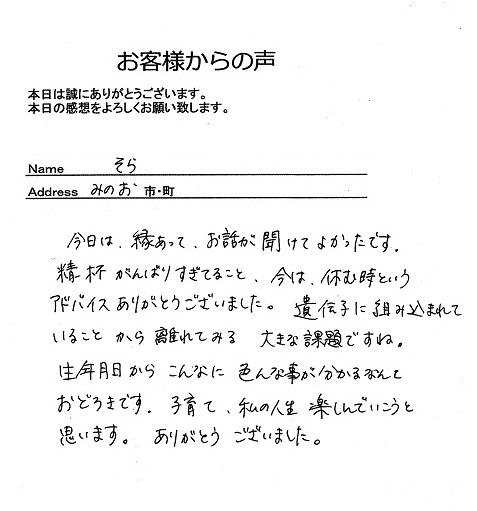 お客様からの声
本日は誠にありがとうございます。
本日の感想をよろしくお願い致します。
Name そら
Address みのお 市・町
今日は、縁あって、お話が聞けてよかったです。
精杯がんばりすぎてること、今は、休む時という
アドバイスありがとうございました。遺伝子に組み込まれて
いることから離れてみる 大きな課題ですね。
生年月日からこんなに色んな事が分かるなんて
おどろきです。子育て、私の人生楽しんでいこうと
思います。ありがとうございました。